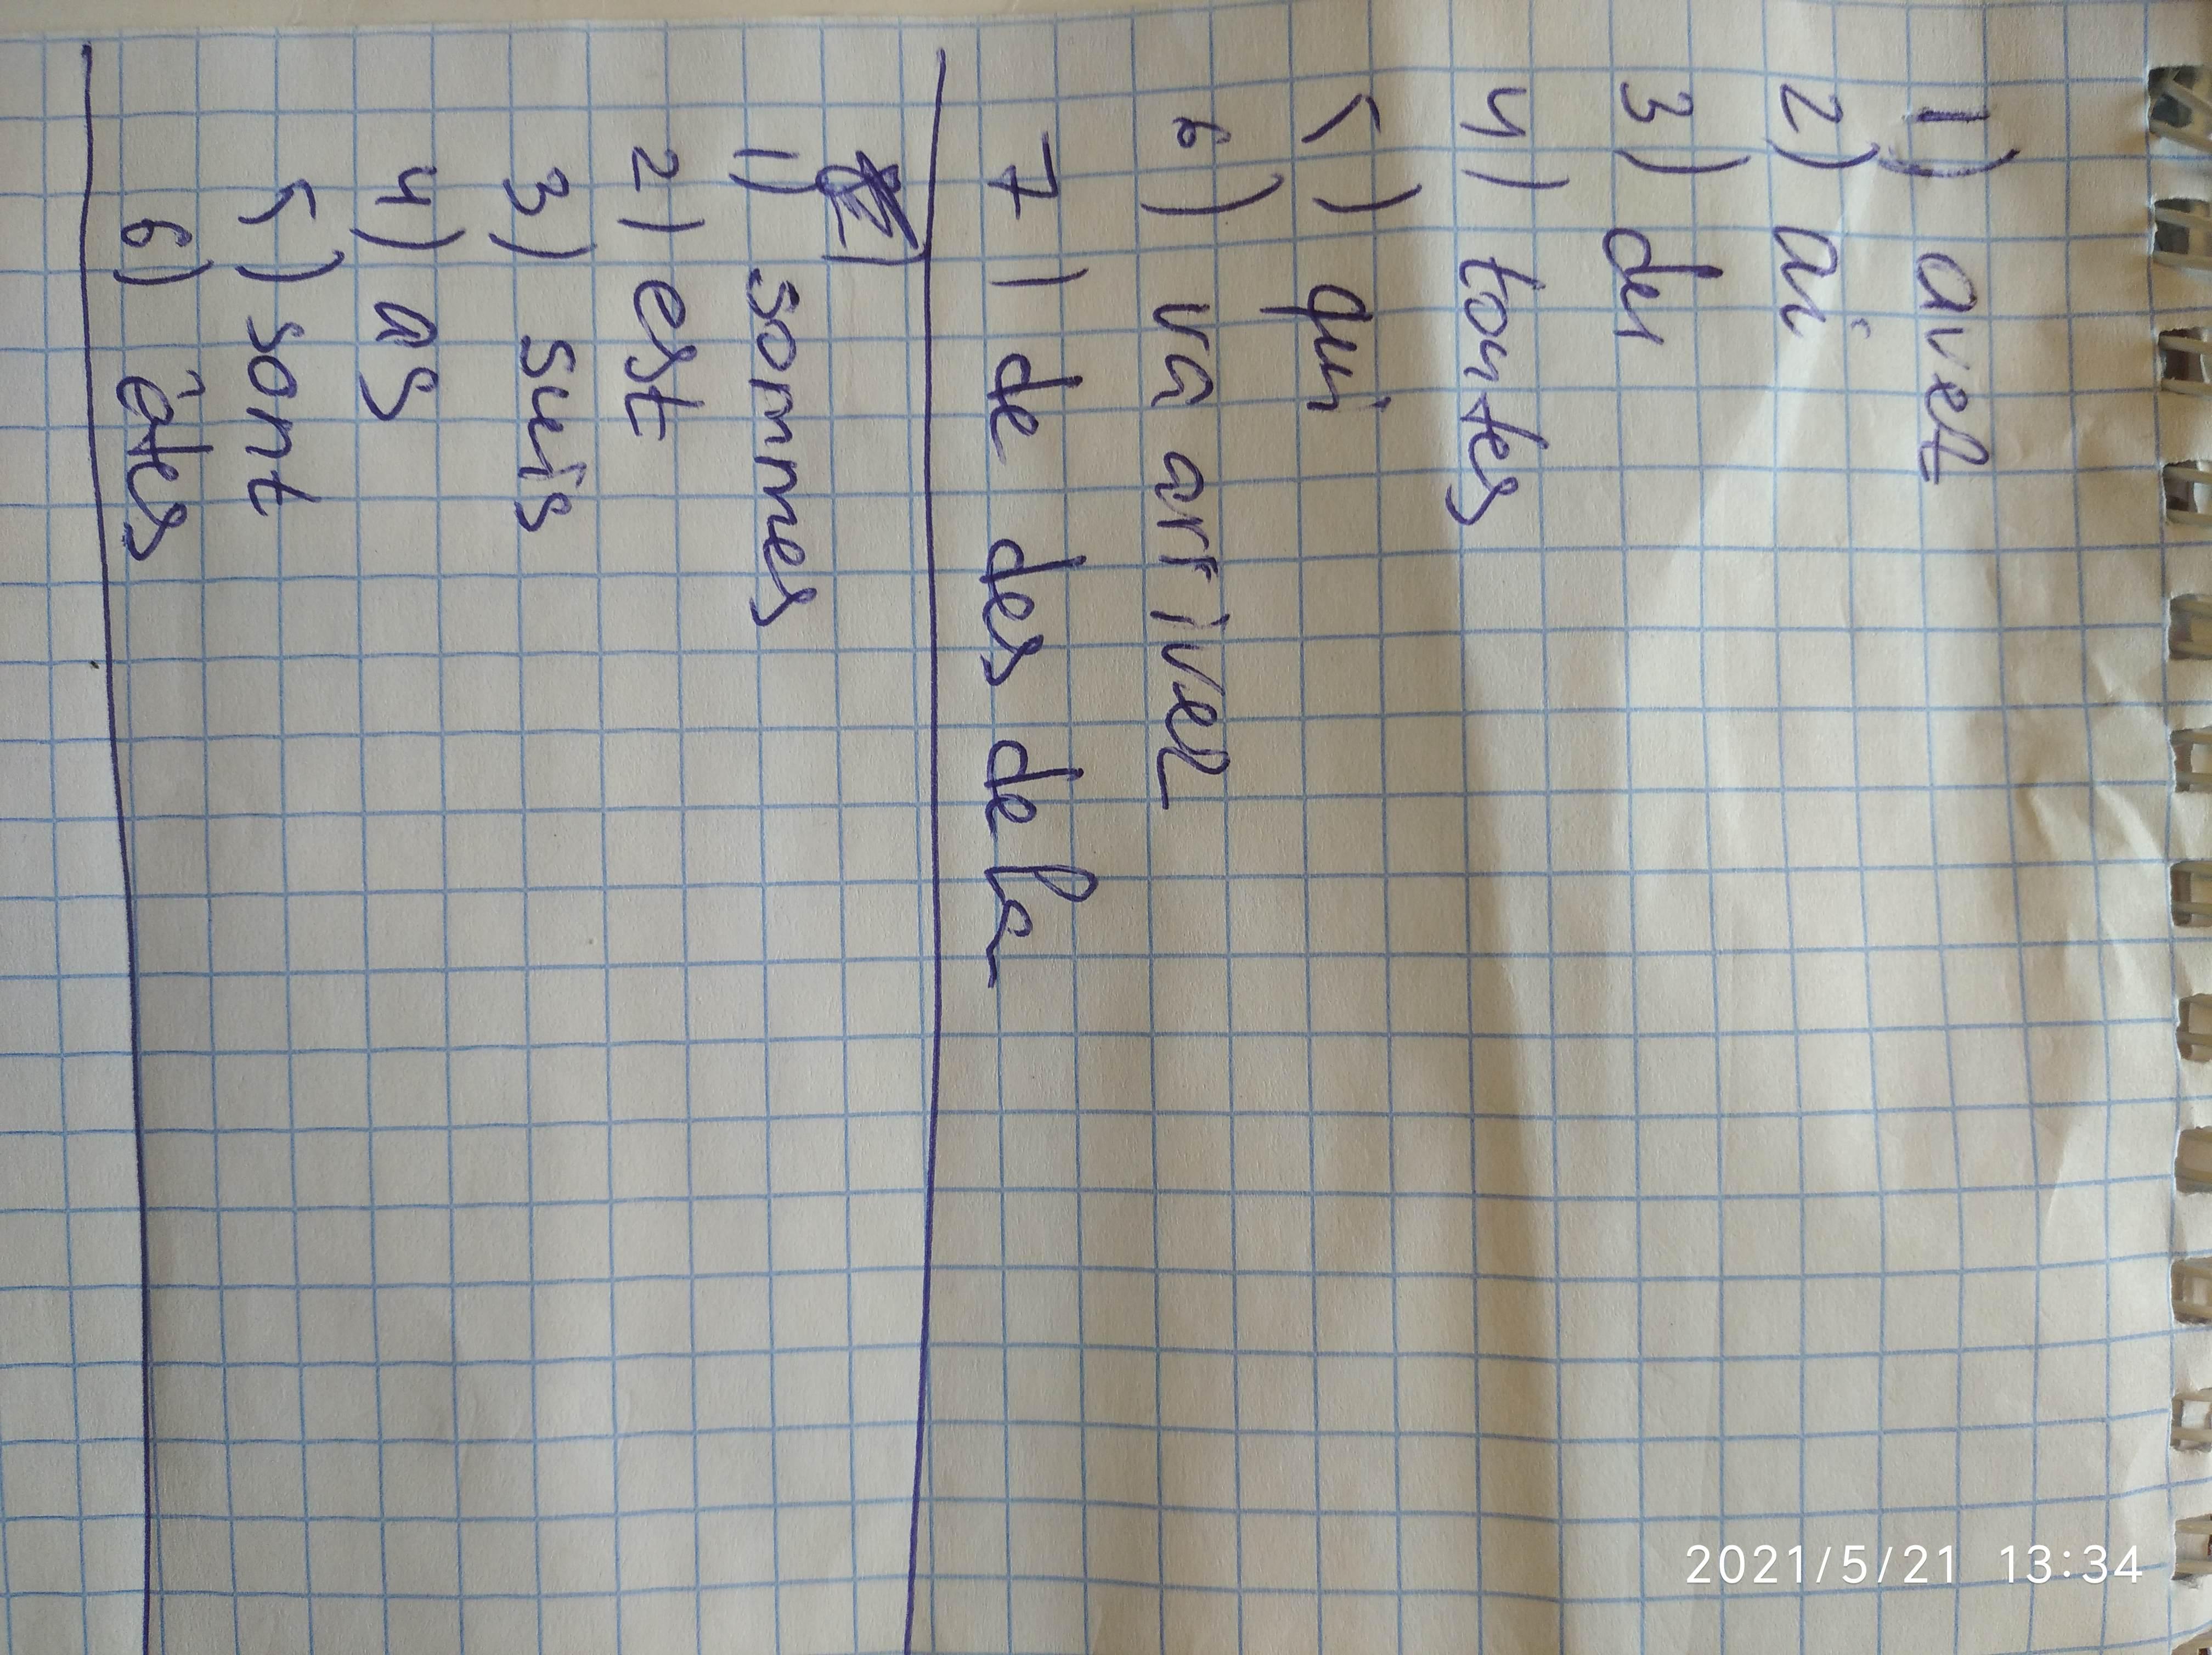 1) avez
2) ai
3) des
4) toutes
5) qui
6) va arriver
7) de des de la
1) sommes
2) est
3) suis
4) as
5) sont
6) êtes
2021/5/21 13:34